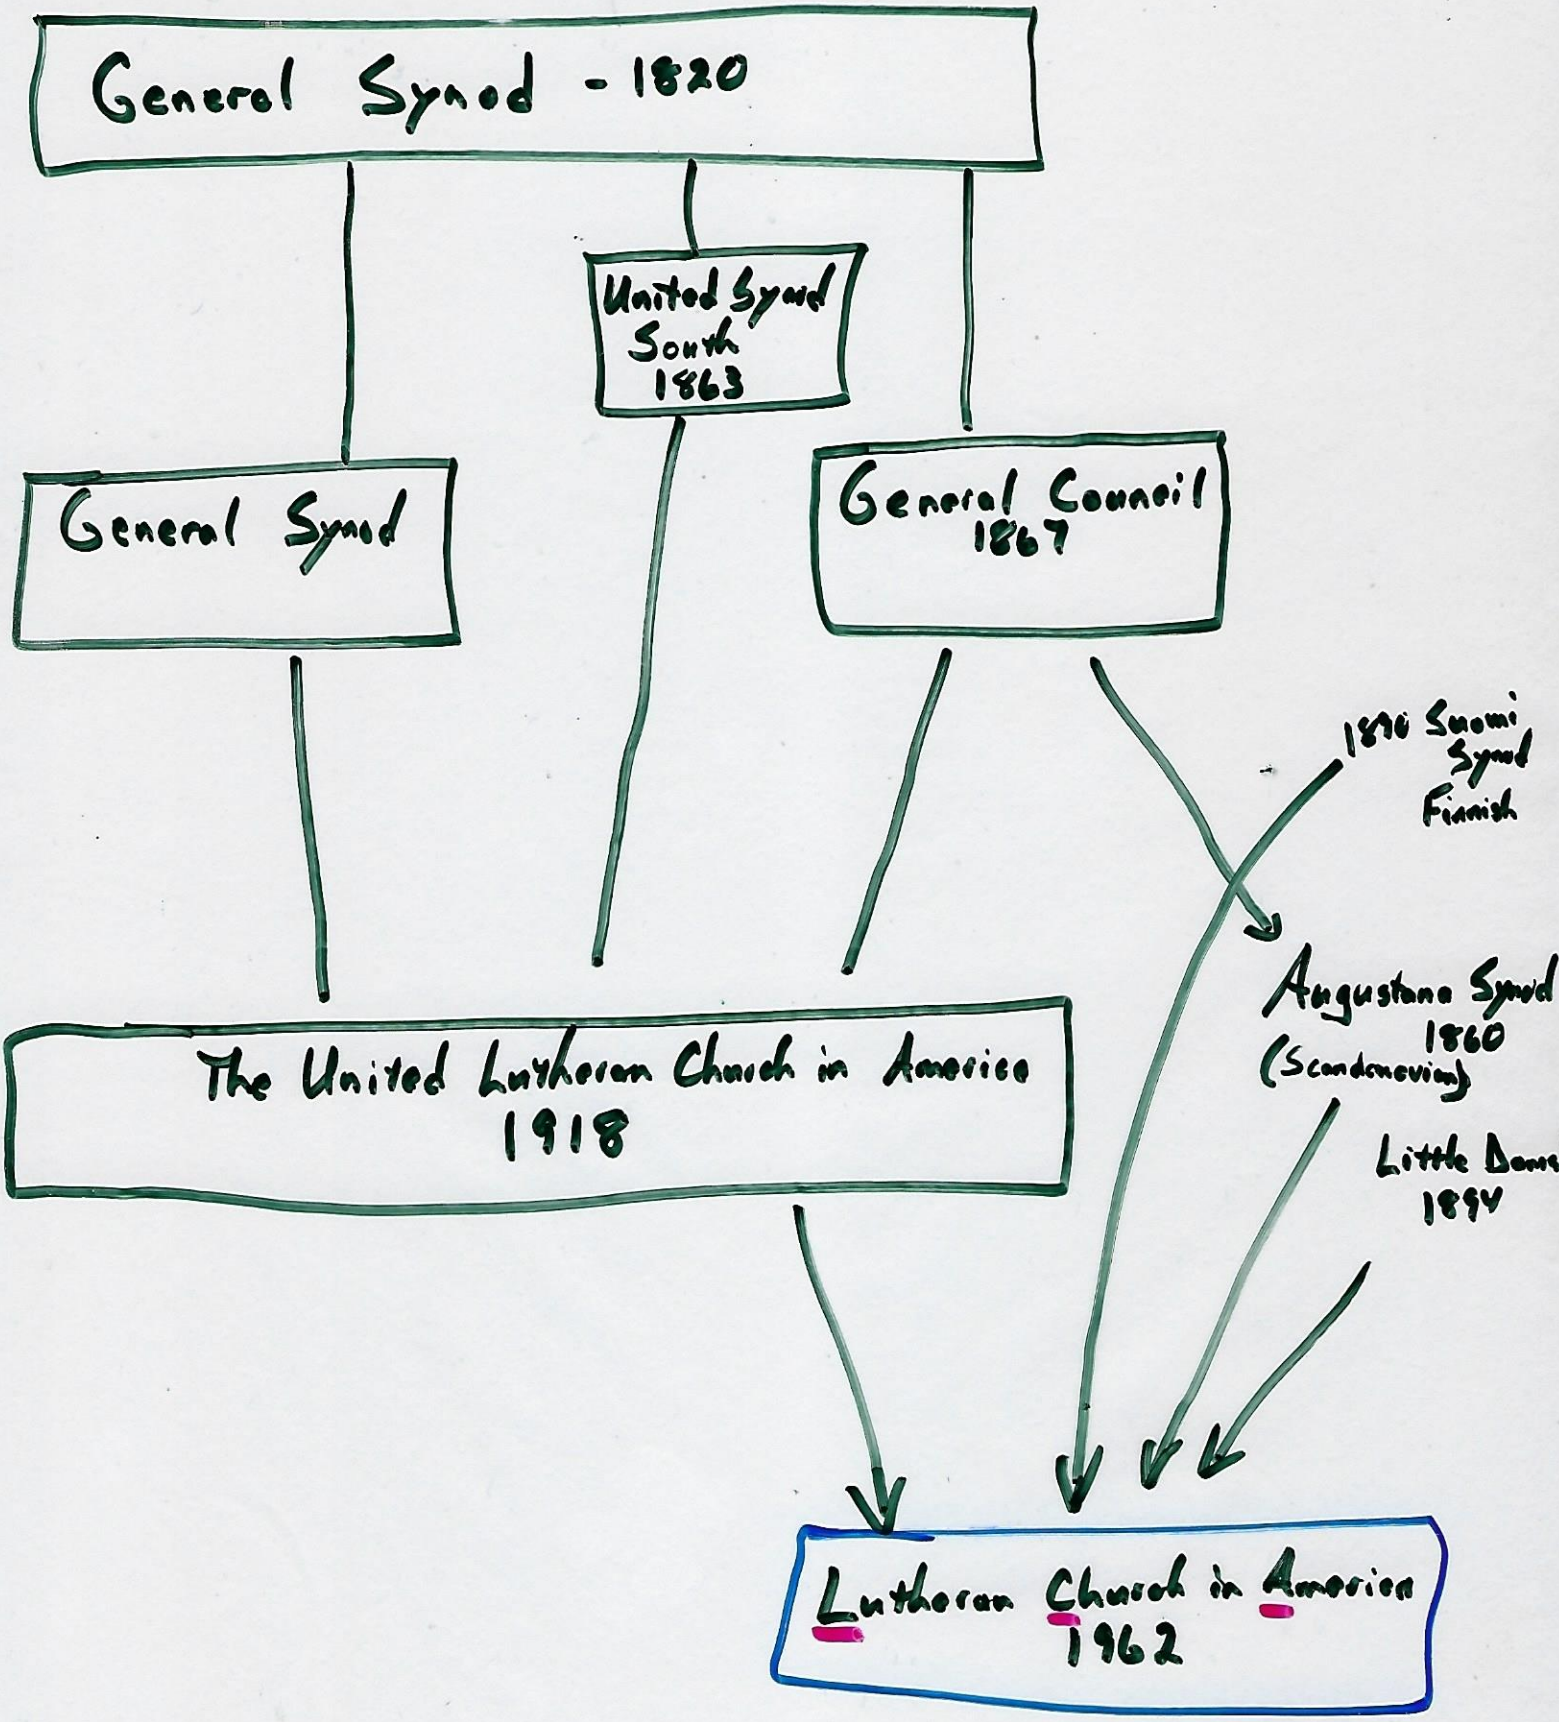 General Synod - 1820
United Synod
South
1863
General Synod
General Council
1867
1890 Suomi
Synod
Finnish
Augustana Synod
1860
(Scandenavian)
The United Lutheran Church in America
1918
Little Dane
1894
Lutheran Church in America
1962